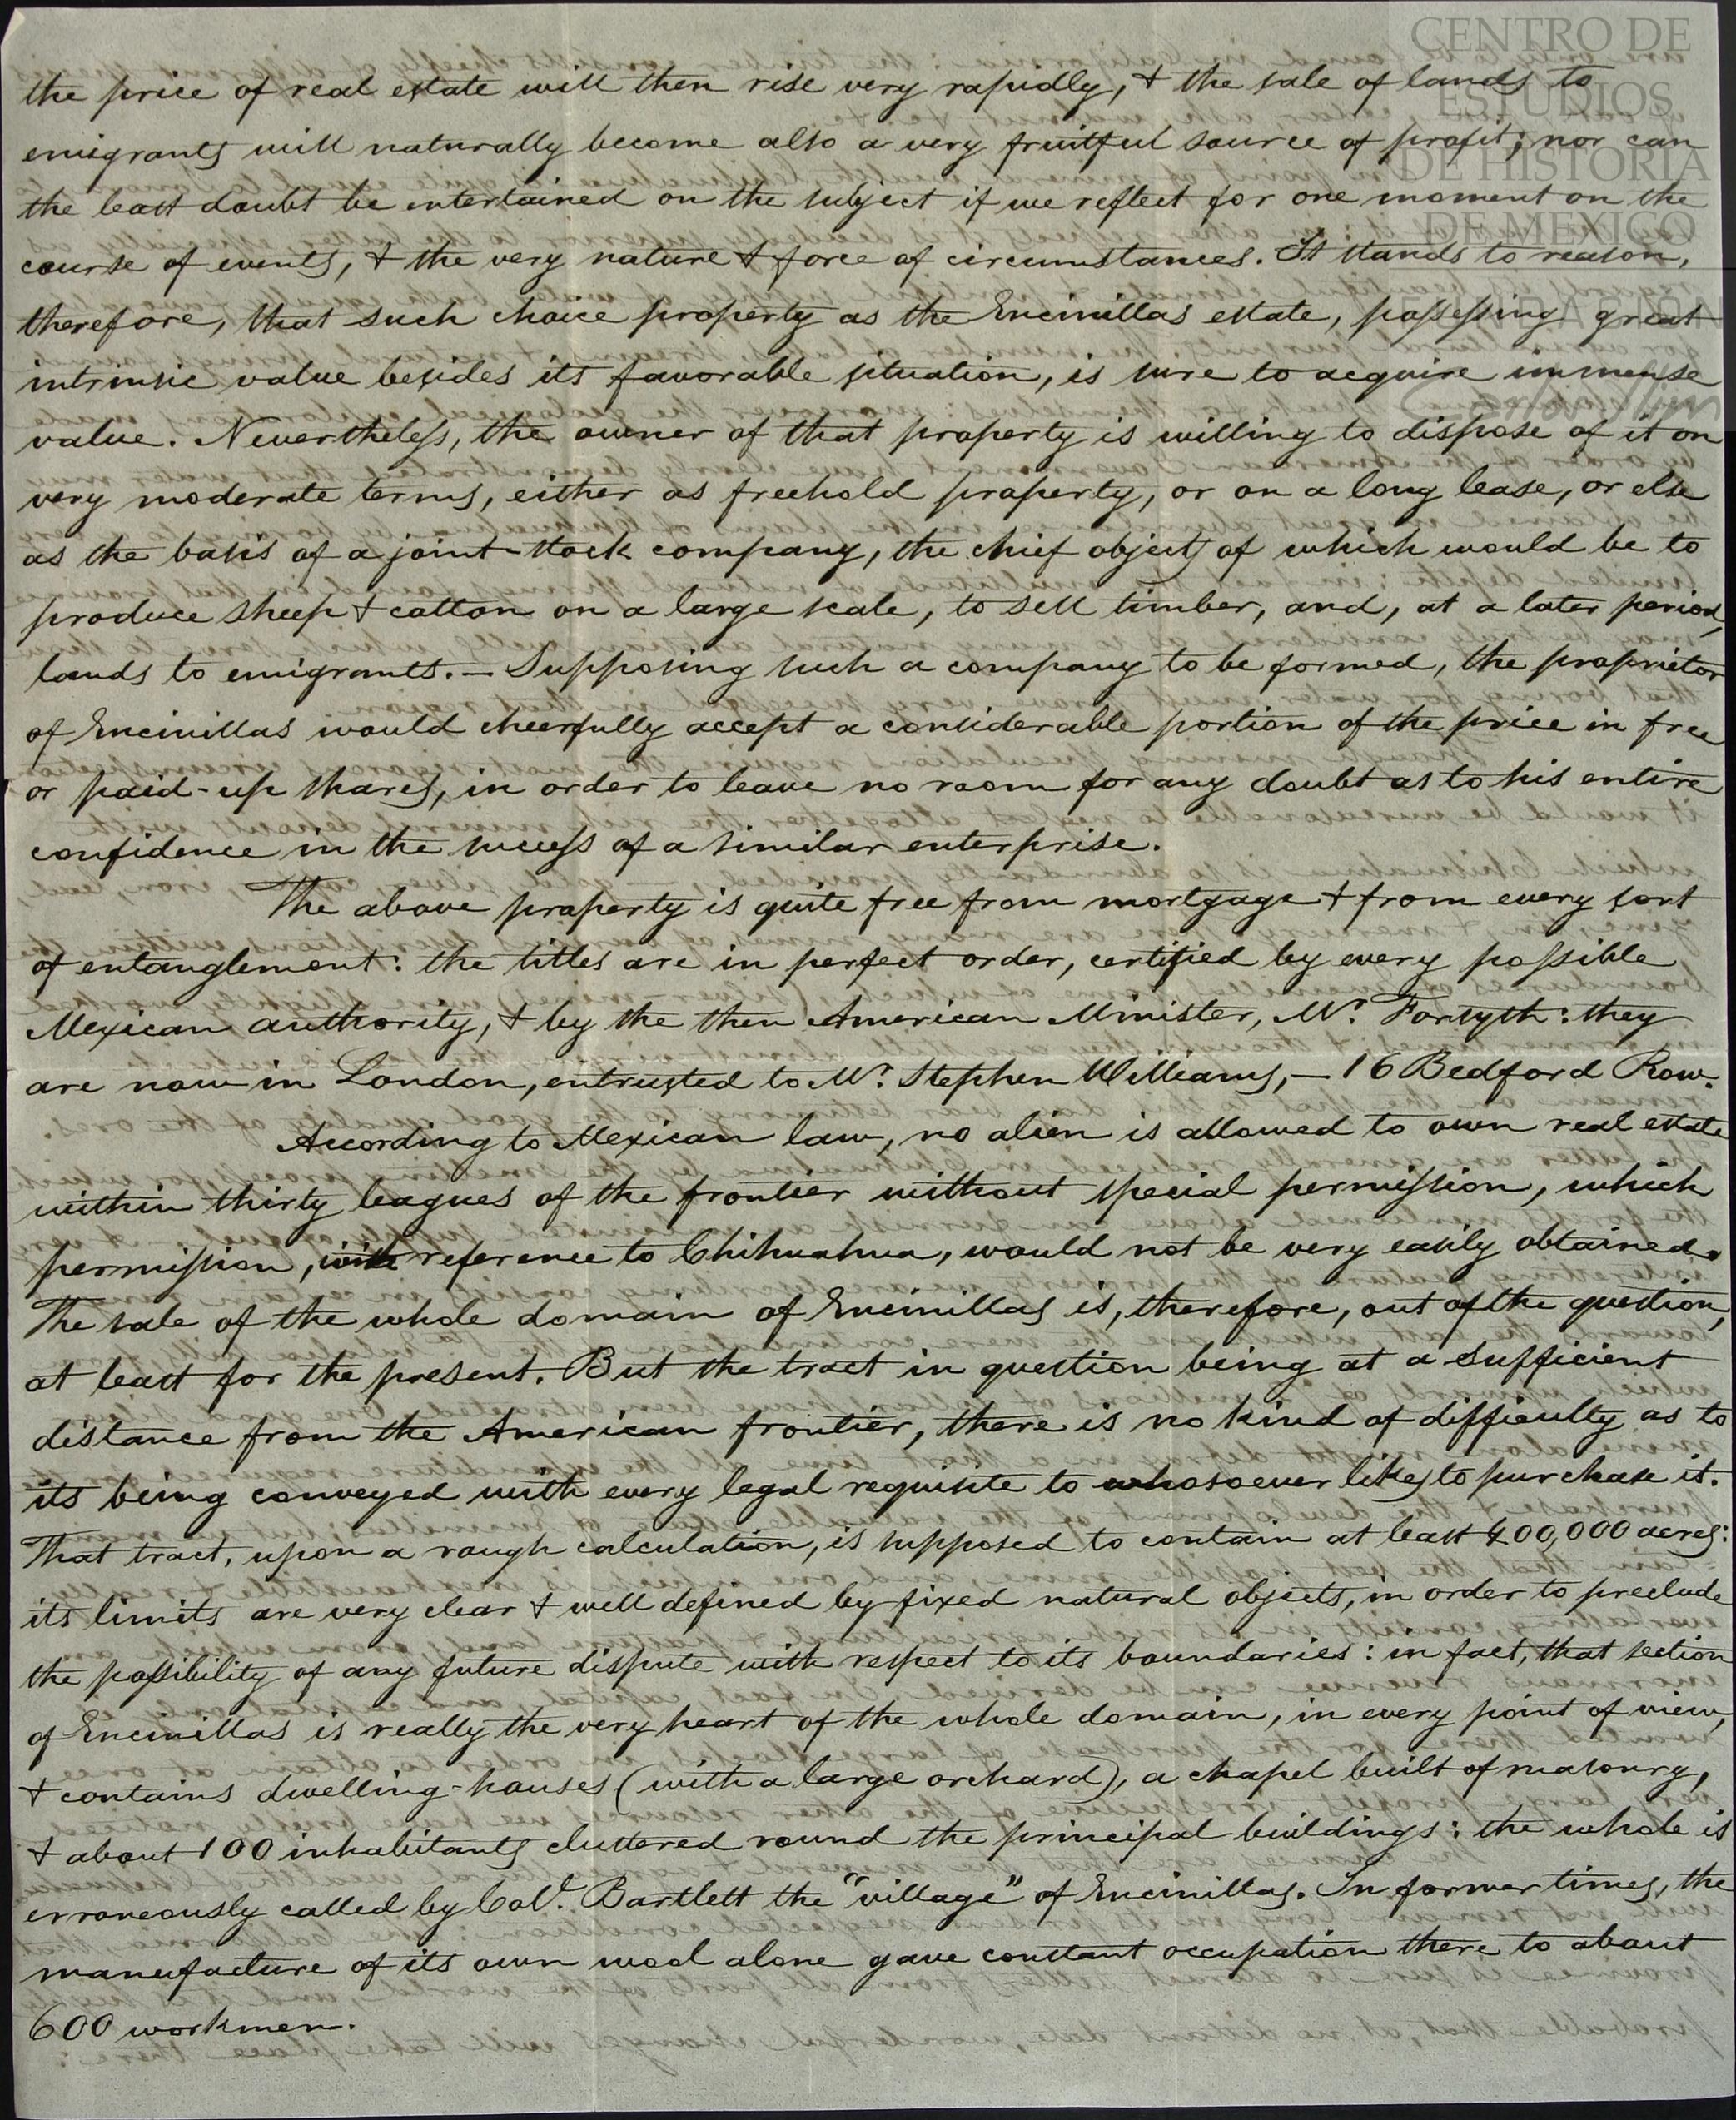 CENTRO DE
ESTUDIOS
DE HISTORIA
DE MEXICO
FUNDACIÓN
Carlos Slim
the price of real estate will then rise very rapidly, & the sale of lands to
emigrants will naturally become also a very fruitful source of profit; nor can
the least doubt be entertained on the subject if we reflect for one moment on the
course of events, & the very nature & force of circumstances. It stands to reason,
therefore, that such choice property as the Encinillas estate, possessing great
intrinsic value besides its favorable situation, is sure to acquire immense
value. Nevertheless, the owner of that property is willing to dispose of it on
very moderate terms, either as freehold property, or on a long lease, or else
as the basis of a joint-stock company, the chief objects of which would be to
produce sheep & cotton on a large scale, to sell timber, and, at a later period,
lands to emigrants. — Supposing such a company to be formed, the proprietor
of Encinillas would cheerfully accept a considerable portion of the price in free
or paid-up shares, in order to leave no room for any doubt as to his entire
confidence in the success of a similar enterprise.
The above property is quite free from mortgage & from every sort
of entanglement: the titles are in perfect order, certified by every possible
Mexican authority, & by the then American Minister, Mr. Forsyth: they
are now in London, entrusted to Mr. Stephen Williams, — 16 Bedford Row.
According to Mexican law, no alien is allowed to own real estate
within thirty leagues of the frontier without special permission, which
permission, with reference to Chihuahua, would not be very easily obtained.
The sale of the whole domain of Encinillas is, therefore, out of the question,
at least for the present. But the tract in question being at a sufficient
distance from the American frontier, there is no kind of difficulty as to
its being conveyed with every legal requisite to whosoever likes to purchase it.
That tract, upon a rough calculation, is supposed to contain at least 400,000 acres:
its limits are very clear & well defined by fixed natural objects, in order to preclude
the possibility of any future dispute with respect to its boundaries: in fact, that section
of Encinillas is really the very heart of the whole domain, in every point of view,
& contains dwelling-houses (with a large orchard), a chapel built of masonry,
& about 100 inhabitants clustered round the principal buildings: the whole is
erroneously called by Col. Bartlett the "village" of Encinillas. In former times, the
manufacture of its own wool alone gave constant occupation there to about
600 workmen.